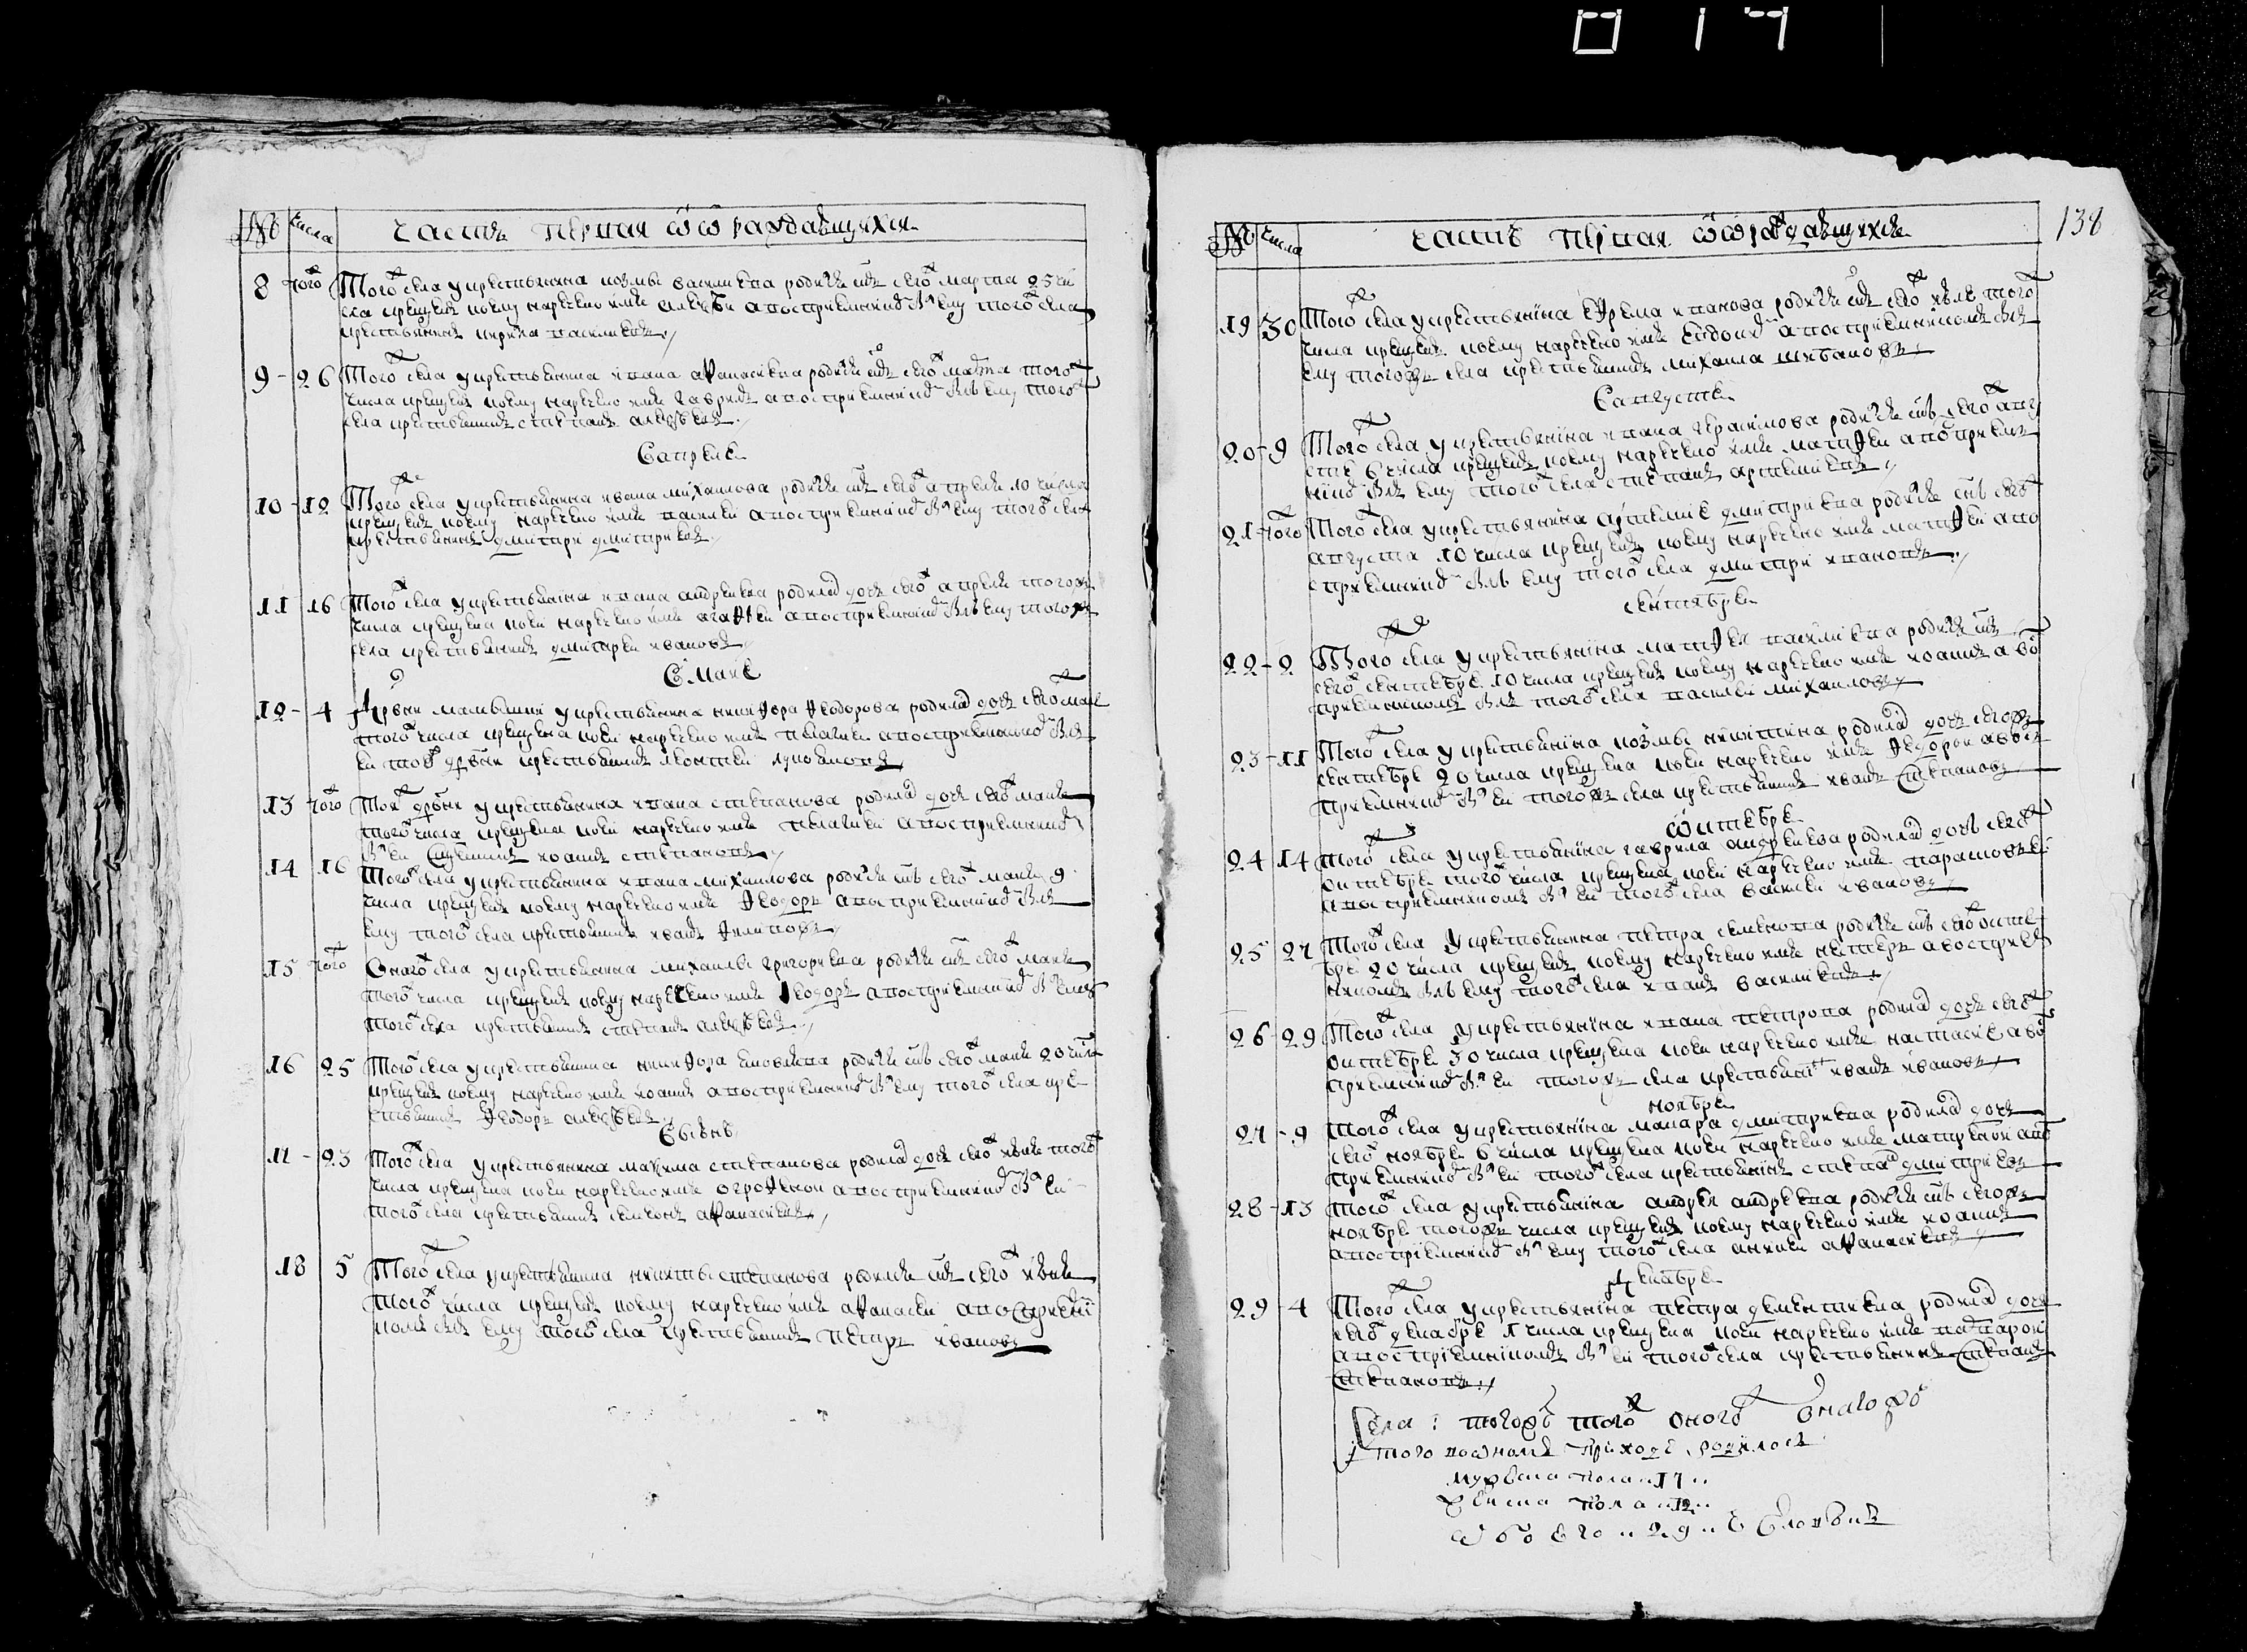 № числа часть первая ѿ ѡ раждавшихся
8 того Того села у крестьянина козмы василева родися сынъ сего марта 25 чи
сла крещенъ коему наречено имя алеѯѣи а восприемникомъ былъ ему того села
крестьянинъ кирила василевъ
9 - 26 Того села у крестьянина ивана афанасиева родися сынъ сего марта того
числа крещенъ коему наречено имя гаврилъ а восприемникомъ былъ ему того
села крестьянинъ степанъ алеѯѣевъ
Ѡ апреле
10 - 12 Того села у крестьянина ивана михаилова родися сынъ сего апреля 10 числа
крещенъ коему наречено имя василеи а восприемникомъ былъ ему того села
крестьянинъ дмитри дмитриевъ
11 16 Того села у крестьянина ивана андреева родилась дочь сего апреля того
числа крещена коеи наречено имя агафеи а восприемникомъ былъ ему того
села крестьянинъ дмитреи ивановъ
Ѡ маие
12 - 4 Дрвни мамышни у крестьянина никифора феодорова родилась дочь сего мая
того числа крещена коеи наречено имя пелагии а восприемникомъ былъ
еи тои дрвни крестьянинъ леонтеи
13 того Тои дрвни у крестьянина ивана степанова родилась дочь сего мая
того числа крещена коеи наречено имя пелагии а восприемникомъ
былъ еи иоаннъ степановъ
14 16 Того села у крестьянина ивана михаилова родися сынъ сего мая 9
числа крещенъ коему наречено имя феодоръ а восприемникомъ былъ
ему того села крестьянинъ иванъ филиповъ
15 того Оного села у крестьянина михаилы григориева родися сынъ сего мая
того числа крещенъ коему наречено имя феодоръ а восприемникомъ былъ ему
того села крестьянинъ степанъ алеѯѣевъ
16 25 Того села у крестьянина никифора родися сынъ сего мая 20 числа
крещенъ коему наречено имя иоаннъ а восприемникомъ былъ ему того села кре
стьянинъ феодоръ алеѯѣевъ
17 - 23 Того села у крестьянина маѯима степанова родилась дочь сего июня того
числа крещена коеи наречено имя а восприемникомъ былъ еи
того села крестьянинъ семионъ афанасиевъ
18 5 Того села у крестьянина никиты степанова родися сынъ сего июля
того числа крещенъ коему наречено имя афанасеи а восприемни
комъ былъ ему того села крестьянинъ петръ ивановъ
138
№ числа часть первая ѿ ѡ раждавшихся
19 30 Того села у крестьянина ефрема иванова родися сынъ сего июля того
числа крещенъ коему наречено имя а восприемникомъ былъ
ему того села крестьянинъ михаила
Ѡ августе
20 - 9 Того села у крестьянина ивана герасимова родися сынъ сего авгу
ста 6 числа крещенъ коему наречено имя матфеи а воприем
никомъ былъ ему того села степанъ артемиевъ
21 того Того села у крестьянина артемие дмитриева родися сынъ сего
августа 10 числа крещенъ коему наречено имя матфеи а во
сприемникомъ былъ ему того села дмитри ивановъ
сентябре
22 - 2 Того села у крестьянина матфея василиева родися сынъ
сего сентября 10 числа крещенъ коему наречено имя иоаннъ а во
приемникомъ былъ того села василеи михаиловъ
23 - 11 Того села у крестьянина козмы никитина родилась дочь сего
сентября 20 числа крещена коеи наречено имя феодоры а вос
приемникомъ былъ еи того села крестьянинъ иванъ степановъ
ѡктябре
24 14 Того села у крестьянина гаврила андреева родилась дочь сего
октября того числа крещена коеи наречено имя парасковеи
а восприемникомъ былъ еи того села василеи ивановъ
25 27 Того села у крестьянина петра семионова родися сынъ сего октя
бря 20 числа крещенъ коему наречено имя нестеръ а восприем
никомъ былъ ему того села иванъ василиевъ
26 - 29 Того села у крестьянина ивана петрова родилась дочь сего
октября 30 числа крещена коеи наречено имя настасие а во
приемникомъ былъ еи того села крестьянинъ иванъ ивановъ
ноябре
27 - 9 Того села у крестьянина макара дмитриева родилась дочь
сего ноября 6 числа крещена коеи наречено имя матрены а во
приемникомъ былъ еи того села крестьянинъ степанъ дмитриевъ
28 - 13 Того села у крестьянина андрея андреева родися сынъ сего
ноября того числа крещенъ коему наречено имя иоаннъ
а восприемникомъ былъ ему того села афанасиевъ
Декабре
29 - 4 Того села у крестьянина петра дементиева родилась дочь
сего декабря 1 числа крещена коеи наречено имя варварои
а восприемникомъ былъ еи того села крестьянинъ степанъ
степановъ
приходе родилось
мужеска пола 17
женска пола 12
обоего 29 человѣкъ